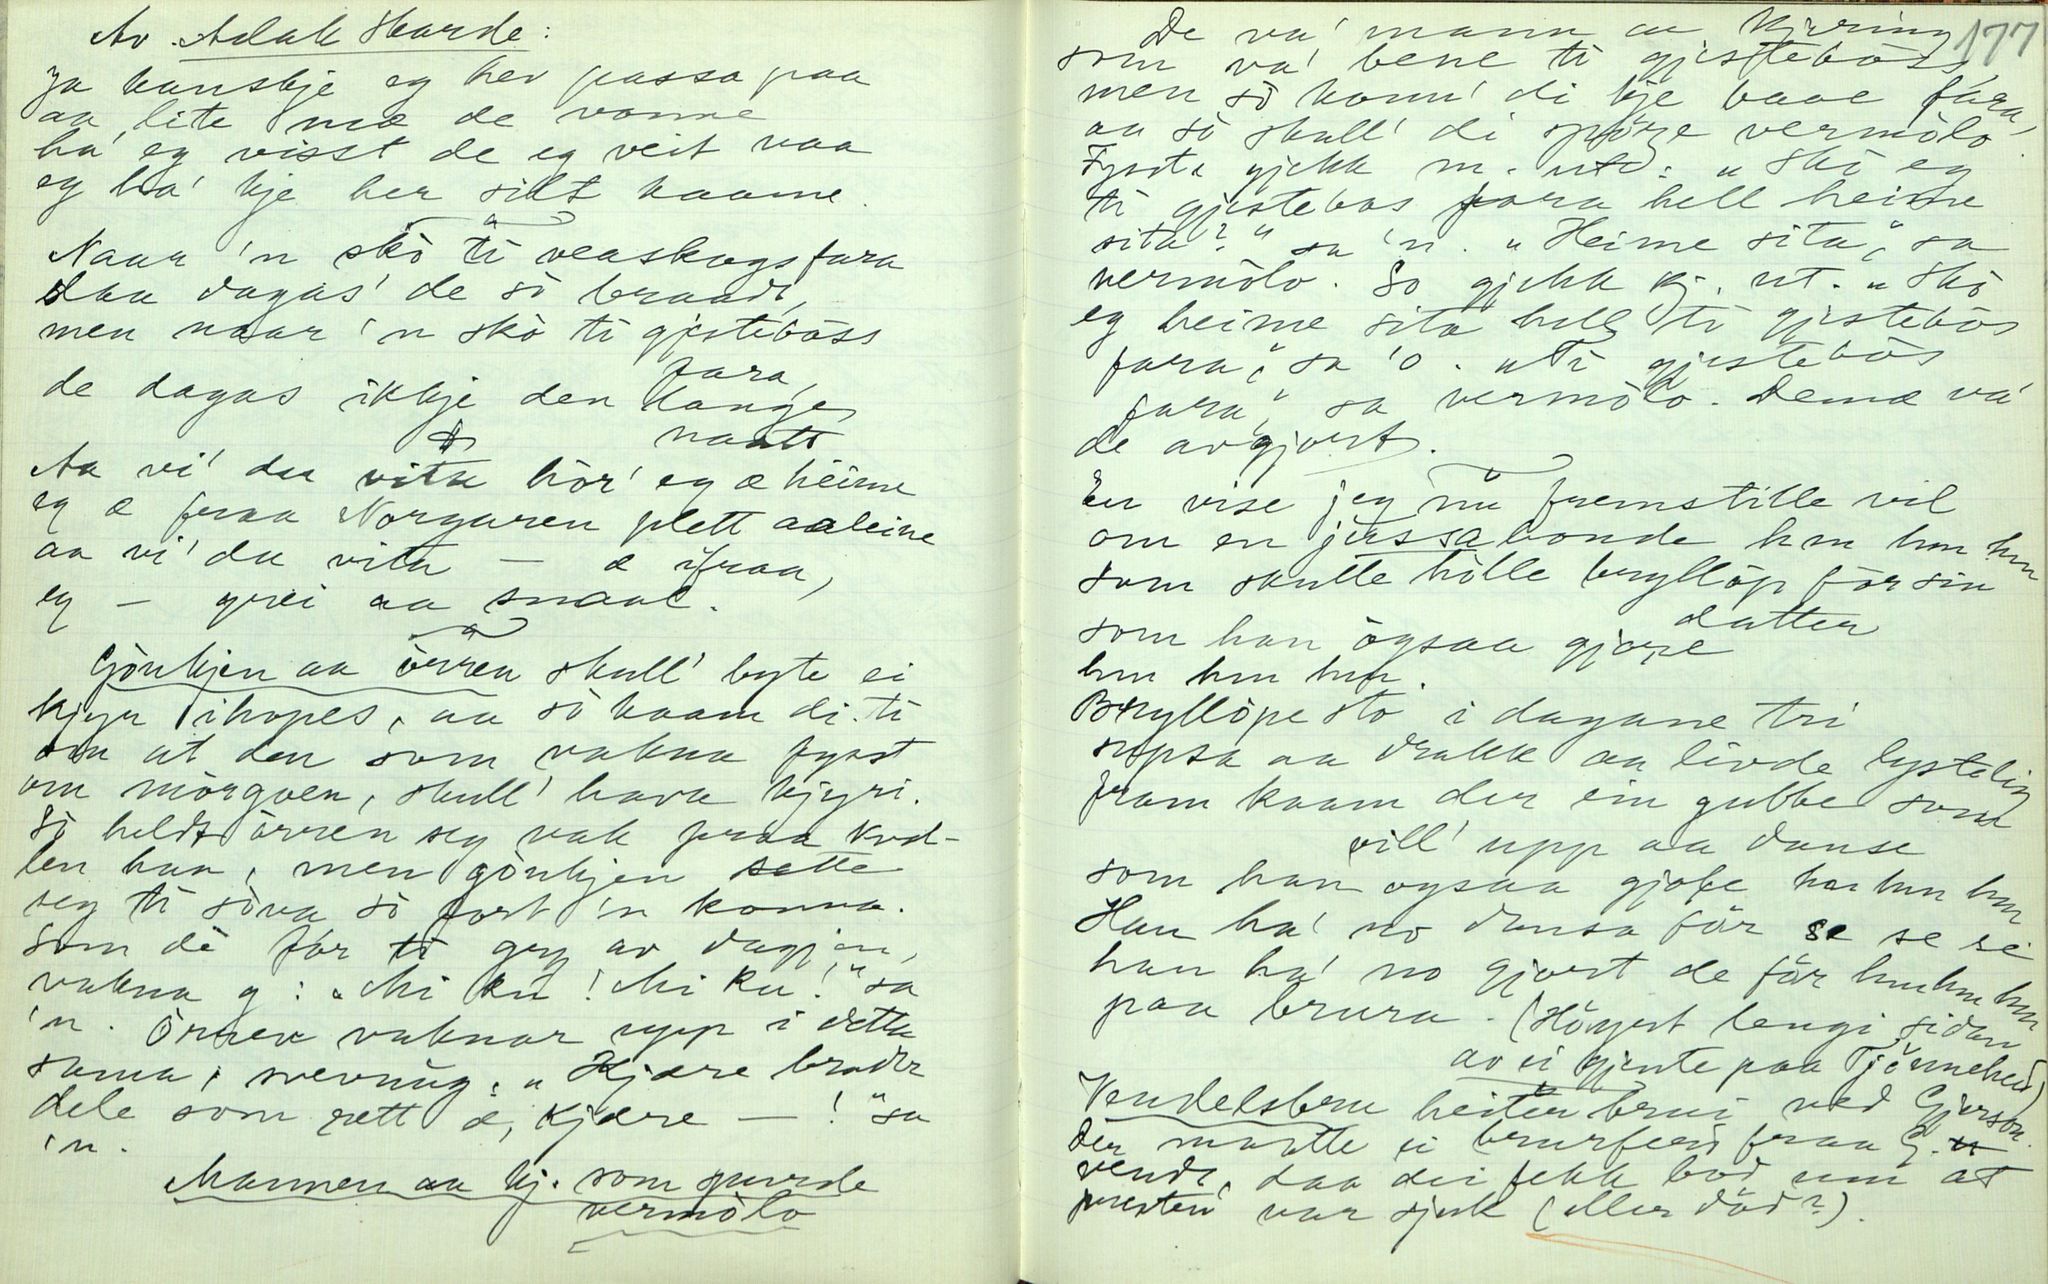 Av Aslak Skarde:
Ja kanskje eg hev passa paa
aa lite mæ de vonne
ha' eg visst de eg veit naa
eg ha' kje her silt kaame.
Naar 'n skò ti veaskogs fara
daa dagas' de sò braadt,
men naar 'n skò ti gjestebòss
fara,
de dagas ikkje den lange
naatt
Aa vi' du vita hòr' eg æ heime
eg æ fraa Norgaren plett aaleine
aa vi' du vita — æ ifraa,
eg — grei aa smaal.
Gòukjen aa òrren skull' byte ei
kjyr ihopes, aa sò kaam di ti
om at den som vakna fyst
om mòrgoen, skull' hava kjyri.
Sò heldt òrren seg vak fraa kvel-
len han, men gòukjen sette
seg ti sòva sò fort 'n konna.
Som de fòr ti gry av dagjen,
vakna g: "Mi ku! Mi ku!" sa
'n. Òrren vaknar upp i detta
sama, svevnug: "Kjære broder
dele som rett æ, kjære — !" sa
'n.
Mannen aa kj. som spurde
vermòlo
177
De va' mann aa kjering
som va' bene ti gjestebòss,
men sò konn' di kje baae fara,
aa sò skull' di spörre vermòlo.
Fyst gjekk m. ut: "Skò eg
ti gjestebos fara hell heime
sita?" sa 'n. "Heime sita", sa
vermòlo. So gjekk kj. ut. "Skò
eg heime sita hell ti gjestebòs
fara", sa 'o. "Ti gjestebòs
fara", sa vermòlo. Demæ va'
de avgjort.
En vise jeg nu fremstille vil
om en jussabonde hm hm hm
som skulle hòlle bryllòp fòr sin
datter
som han ògsaa gjore
hm hm hm.
Bryllòpe sto i dagane tri
supsa aa drakk aa livde lystelig
fram kaam der ein gubbe som
vill' upp aa danse
som han ogsaa gjore hm hm hm
Han ha' no dansa fòr se se si
han ha' no gjort de fòr hm hm hm
paa brura. (Höyrt lengi sidan
av ei gjente paa Tjönnehei)
Vendelsbru heiter brui ved Gjerson.
Der maatte ei brurferd fraa G.
vende, daa dei fekk bod um at
presten var sjuk (eller död?).